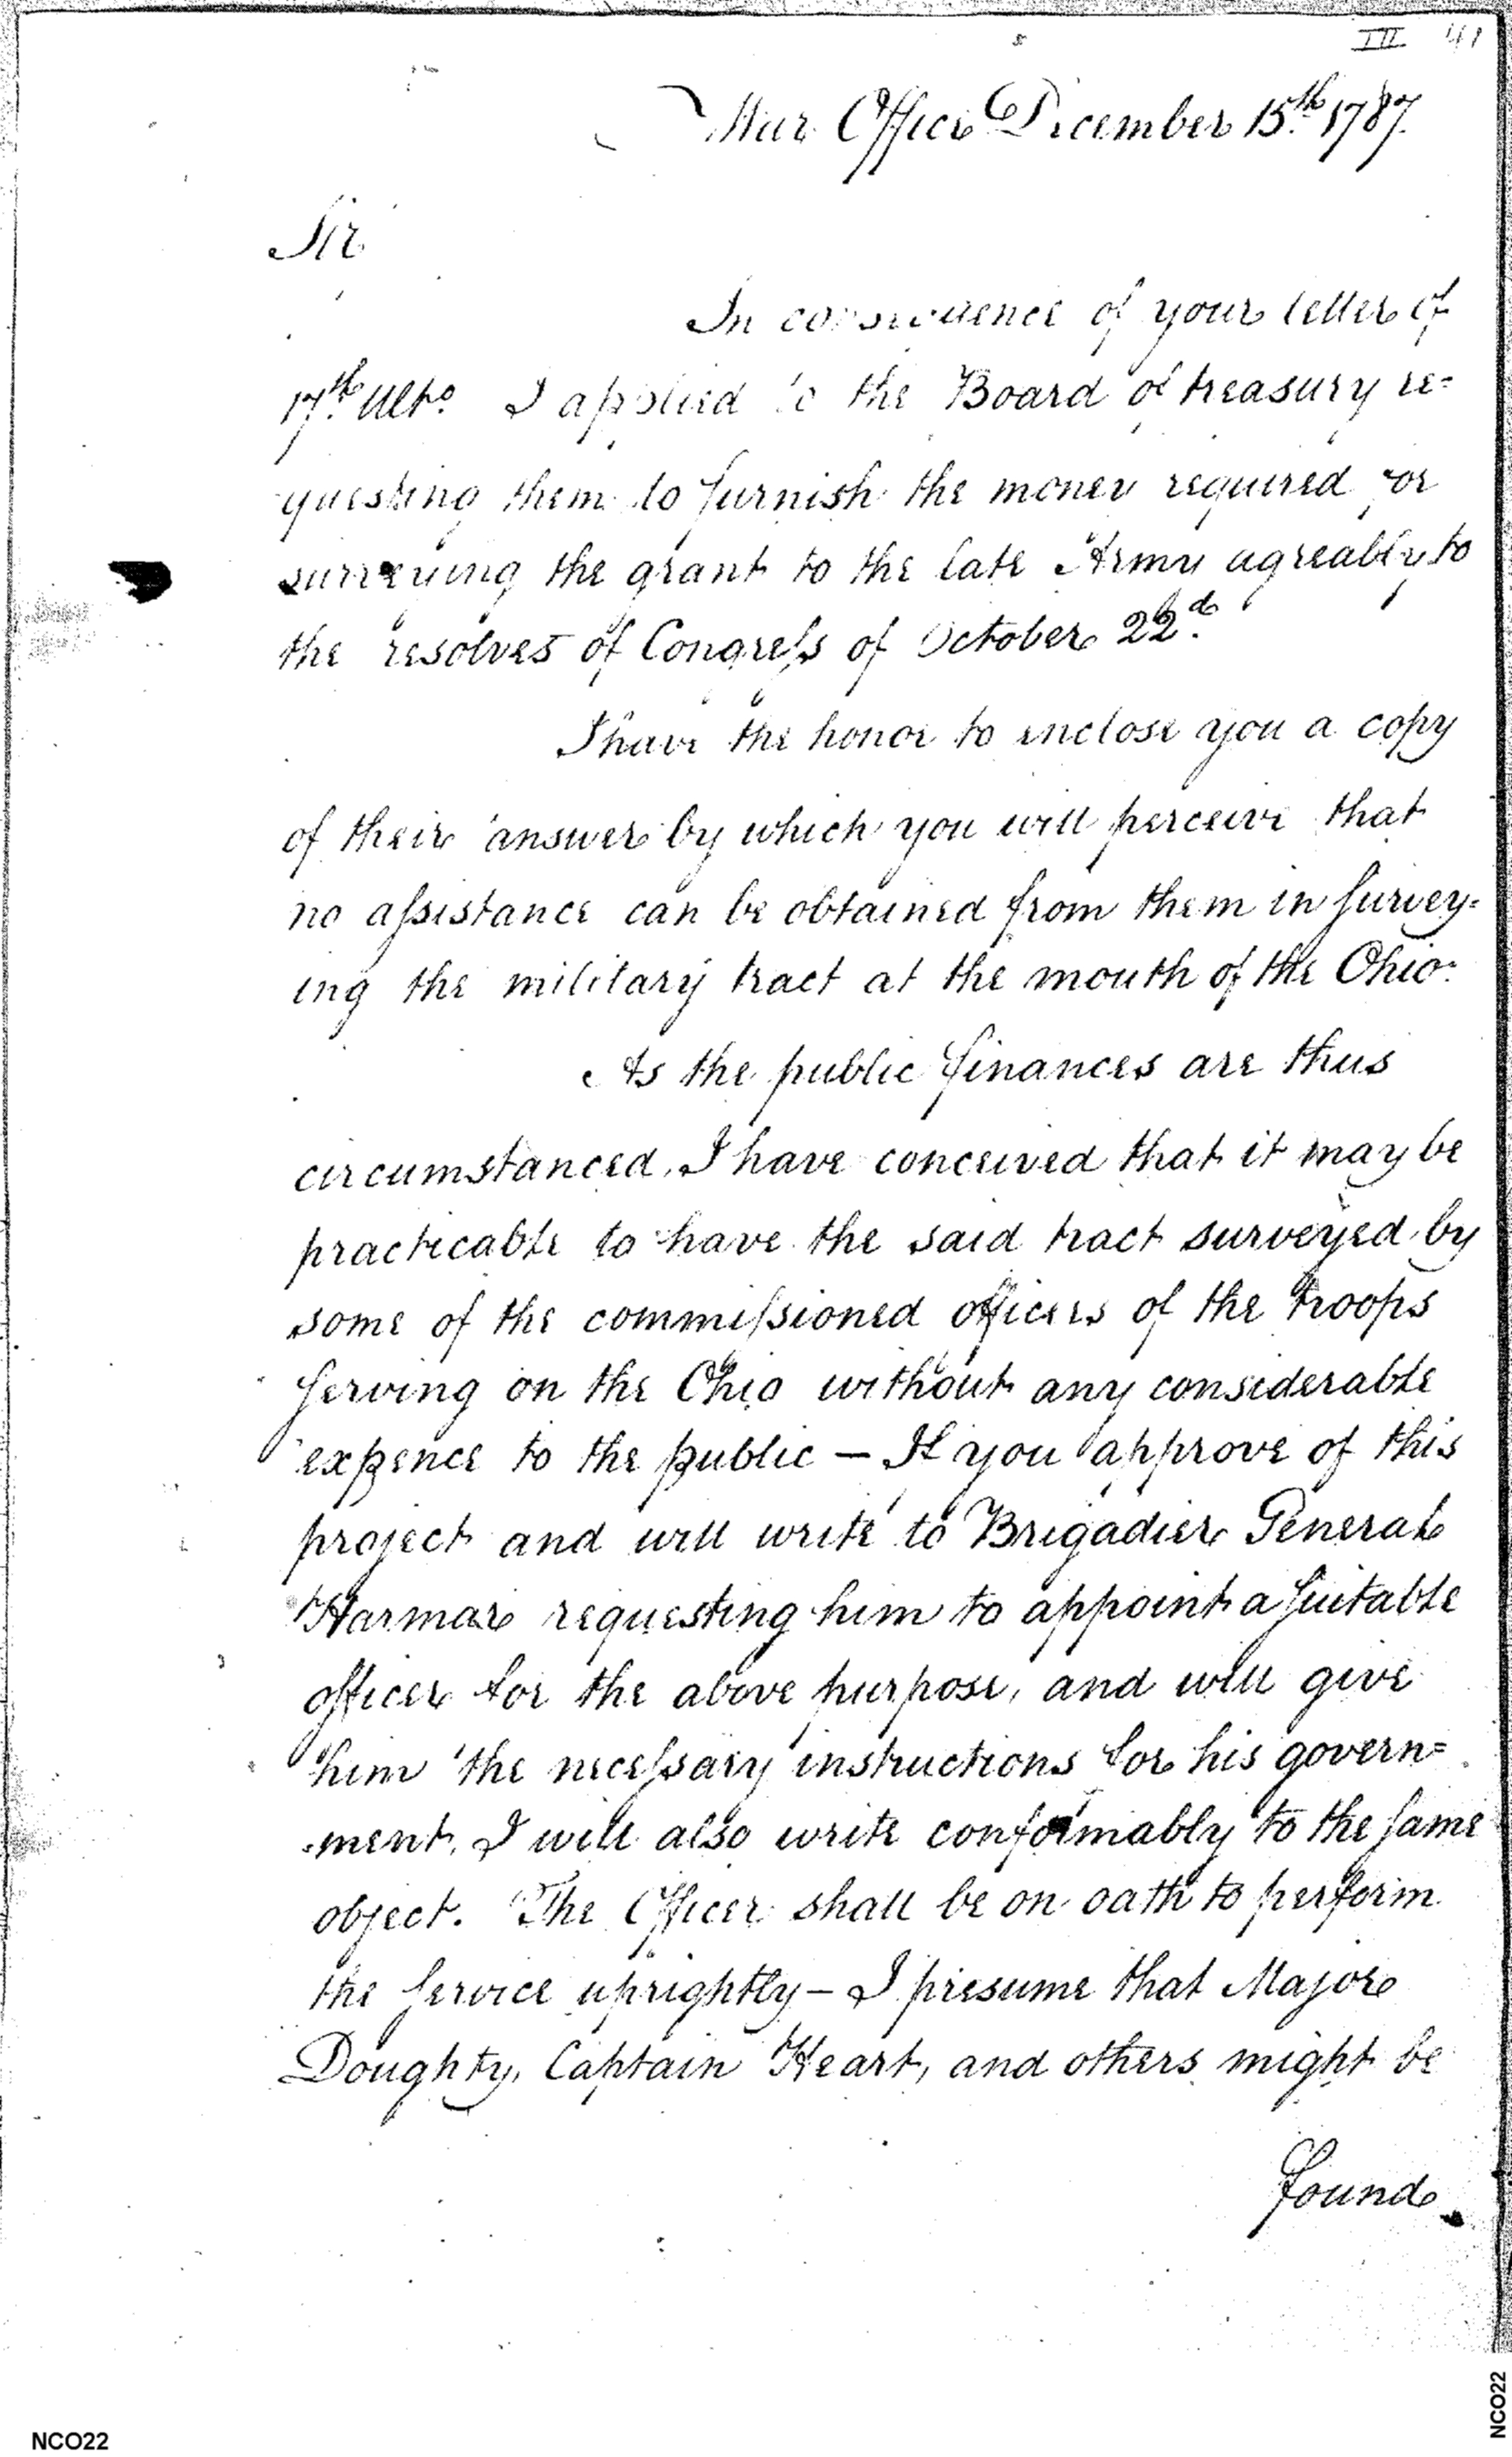 III 41
War Office December 15.th 1787.
Sir
In consequence of your letter of
17.th Ulto. I applied to the Board of treasury re=
questing them to furnish the money required for
surveying the grant to the late Army agreably to
the resolves of Congreſs of October 22.d
I have the honor to inclose you a copy
of their answer by which you will perceive that
no aſsistance can be obtained from them in ſurvey=
ing the military tract at the mouth of the Ohio.
As the public finances are thus
circumstanced, I have conceived that it may be
practicable to have the said tract surveyed by
some of the commiſsioned officers of the troops
ſerving on the Ohio without any considerable
expence to the public — If you approve of this
project and will write to Brigadier General
Harmar requesting him to appoint a ſuitable
officer for the above purpose, and will give
him the neceſsary instructions for his govern=
ment, I will also write conformably to the ſame
object. The Officer shall be on oath to perform
the ſervice uprightly – I presume that Major
Doughty, Captain Heart, and others might be
found
NCO22
NCO22